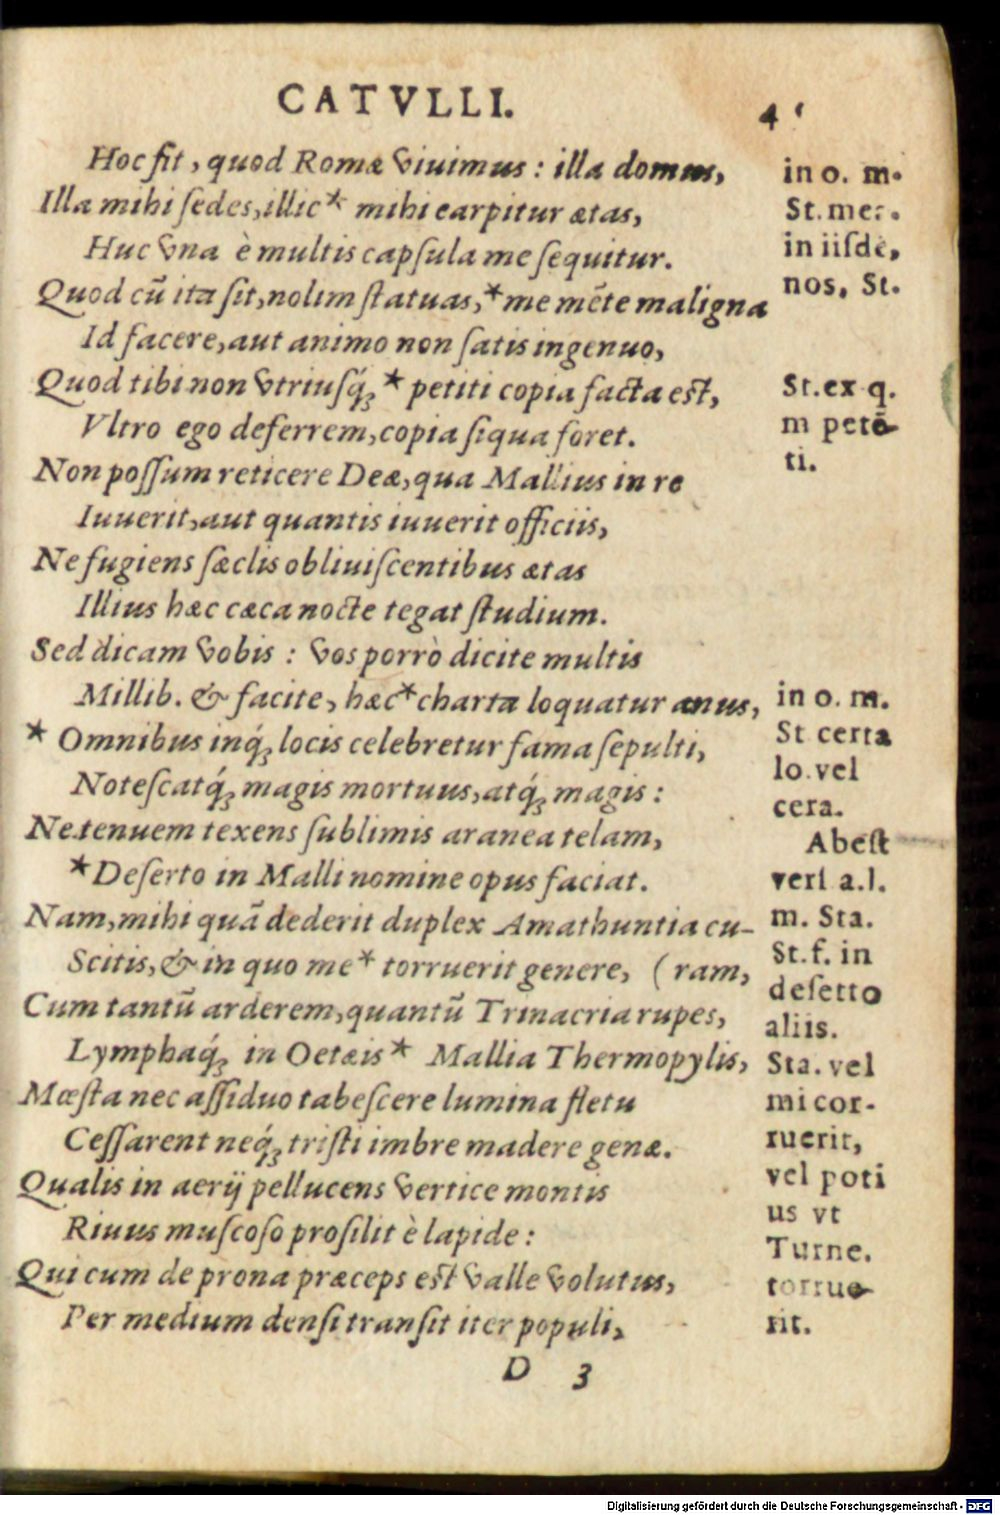 CATVLLI. 4
Hoc fit, quod Romæ viuimus: illa domus,
Illa mihi ſedes, illic* mihi carpitur ætas,
Huc vna è multis capſula me ſequitur.
Quod cū ita ſit, nolim ſtatuas,* me mēte maligna
Id facere, aut animo non ſatis ingenuo,
Quod tibi non vtriuſq́ꝫ * petiti copia facta eſt,
Vltro ego deferrem, copia ſiqua foret.
Non poſſum reticere Deæ, qua Mallius in re
Iuuerit, aut quantis iuuerit officiis,
Ne fugiens ſæclis obliuiſcentibus ætas
Illius hæc cæca nocte tegat ſtudium.
Sed dicam vobis: vos porrò dicite multis
Millib. & facite, hæc* charta loquatur anus,
* Omnibus inq́ꝫ locis celebretur fama ſepulti,
Noteſcatq́ꝫ magis mortuus, atq́ꝫ magis:
Ne tenuem texens ſublimis aranea telam,
*Deſerto in Malli nomine opus faciat.
Nam, mihi quā dederit duplex Amathuntia cu-
Scitis, & in quo me* torruerit genere, (ram,
Cum tantū arderem, quantū Trinacria rupes,
Lymphaq́ꝫ in Oetæis* Mallia Thermopylis,
Mœſta nec aſſiduo tabeſcere lumina fletu
Ceſſarent neq́ꝫ triſti imbre madere genæ.
Qualis in aerij pellucens vertice montis
Riuus muſcoſo proſilit è lapide:
Qui cum de prona præceps eſt valle volutus,
Per medium denſi tranſit iter populi,
D 3
in o. m.
St. mer.
in iiſdē,
nos, St.
St. ex q.
m petē-
ti.
in o. m.
St certa
lo. vel
cera.
Abeſt
verſ a.l.
m. Sta.
St. f. in
deſerto
aliis.
Sta. vel
mi cor-
ruerit,
vel poti
us vt
Turne.
torrue-
rit.
Digitalisierung gefördert durch die Deutsche Forschungsgemeinschaft - DFG